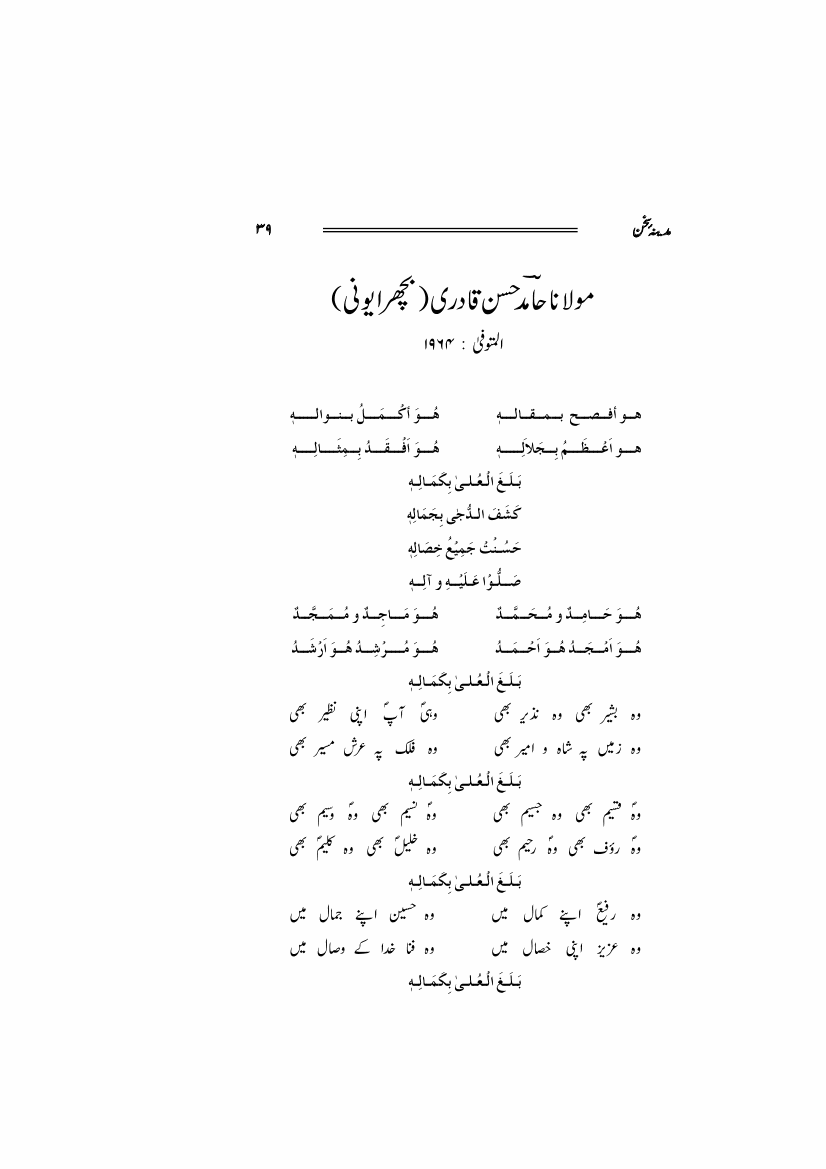 مدینہ سخن ۳۹
مولانا حامدؔ حسن قادری (بچھرایونی)
المتوفیٰ : ۱۹۶۴
هو أفصح بمقالهٖ هُوَ أكْمَلُ بنوالهٖ
هو اَعْظَمُ بِجَلاَلِهٖ هُوَ اَفْقَدُ بِمِثَالِهٖ
بَلَغَ الْعُلىٰ بِكَمَالِهٖ
كَشَفَ الدُّجٰى بِجَمَالِهٖ
حَسُنْتُ جَمِيْعُ خِصَالِهٖ
صَلُّوْا عَلَيْهِ و آلِهٖ
هُوَ حَامِدٌ و مُحَمَّدٌ هُوَ مَاجِدٌ و مُمَجَّدٌ
هُوَ اَمْجَدُ هُوَ اَحْمَدُ هُوَ مُرْشِدُ هُوَ اَرْشَدُ
بَلَغَ الْعُلىٰ بِكَمَالِهٖ
وہ بشیر بھی وہ نذیر بھی وہیؐ آپؐ اپنی نظیر بھی
وہ زمیں پہ شاہ و امیر بھی وہ فلک پہ عرش مسیر بھی
بَلَغَ الْعُلىٰ بِكَمَالِهٖ
وہؐ قسیم بھی وہ جسیم بھی وہؐ نسیم بھی وہؐ وسیم بھی
وہؐ رؤف بھی وہؐ رحیم بھی وہ خلیلؐ بھی وہ کلیمؐ بھی
بَلَغَ الْعُلىٰ بِكَمَالِهٖ
وہ رفیعؐ اپنے کمال میں وہ حسین اپنے جمال میں
وہ عزیز اپنی خصال میں وہ فنا خدا کے وصال میں
بَلَغَ الْعُلىٰ بِكَمَالِهٖ